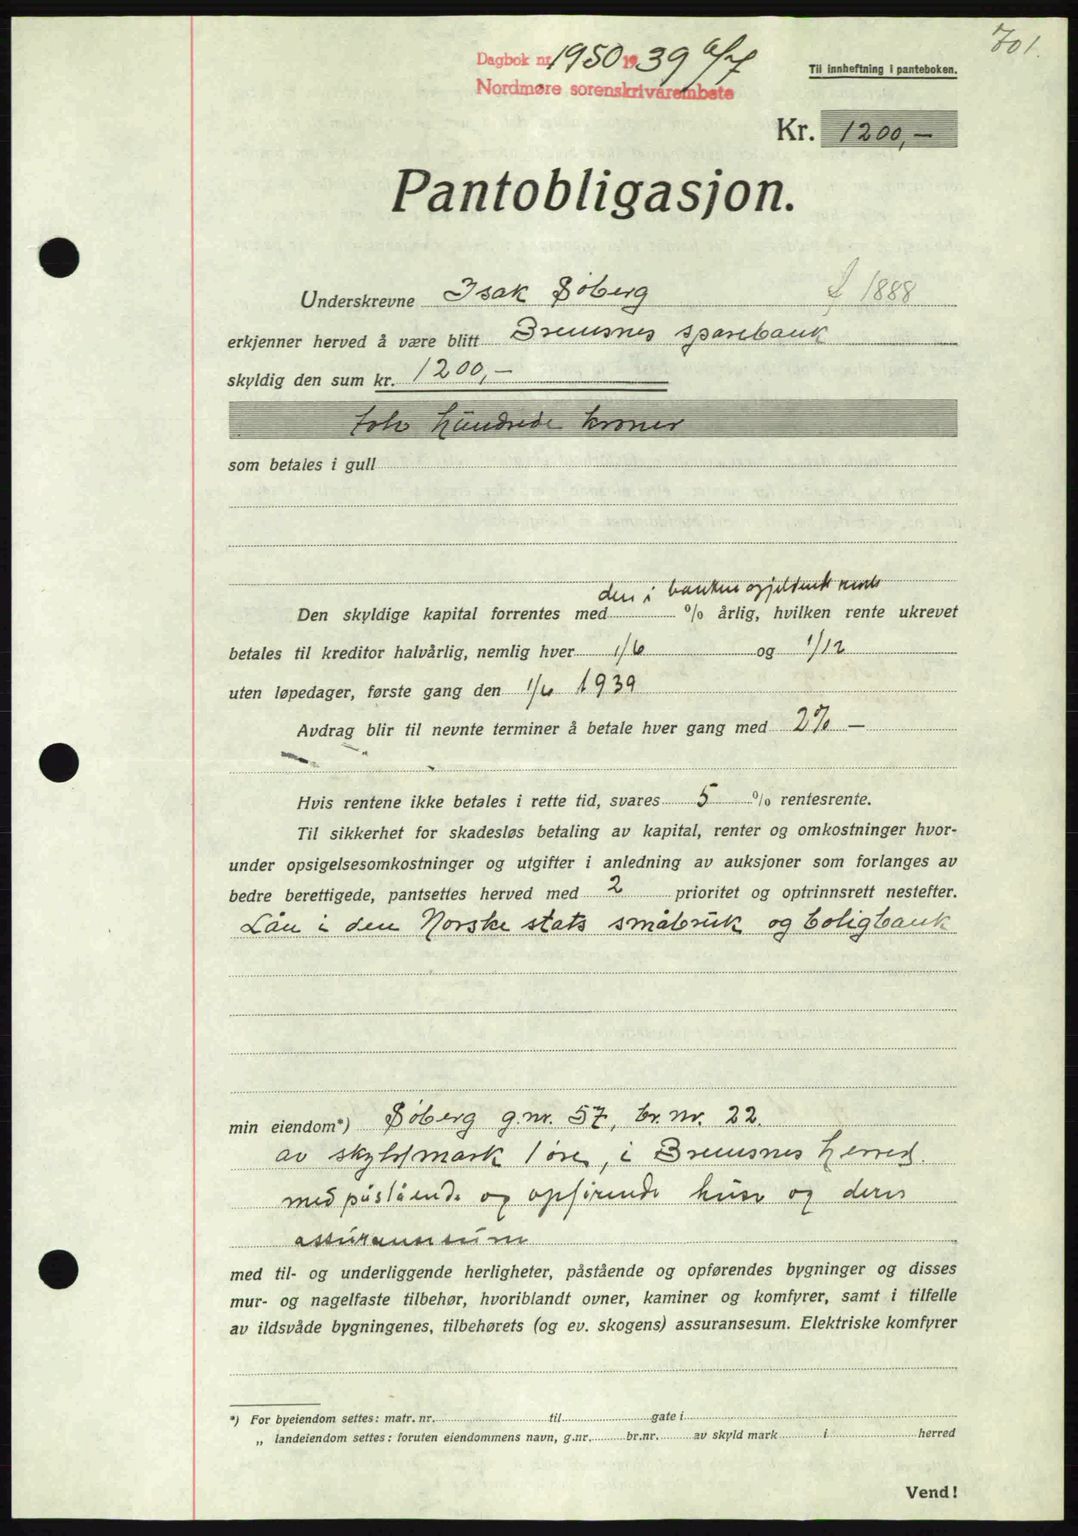 701.
Dagbok nr. 1950 1939 6/7
Nordmøre sorenskriverembete
Til innheftning i panteboken.
Kr. 1200,-
Pantobligasjon.
Underskrevne Isak Søberg f 1888
erkjenner herved å være blitt Bremsnes sparebank
skyldig den sum kr. 1200,-
tolv hundrede kroner
som betales i gull
den i banken gjeldende rente
Den skyldige kapital forrentes med % årlig, hvilken rente ukrevet
betales til kreditor halvårlig, nemlig hver 1/6 og 1/12
uten løpedager, første gang den 1/6 1939
Avdrag blir til nevnte terminer å betale hver gang med 2% —
Hvis rentene ikke betales i rette tid, svares 5 % rentesrente.
Til sikkerhet for skadesløs betaling av kapital, renter og omkostninger hvor-
under opsigelsesomkostninger og utgifter i anledning av auksjoner som forlanges av
bedre berettigede, pantsettes herved med 2 prioritet og optrinnsrett nestefter.
Lån i den Norske stats småbruk og boligbank
min eiendom*) Søberg g.nr. 57, br. nr. 22.
av skyldmark 1 øre, i Bremsnes herred.
med påstående og opførende huse og deres
assuransesum
med til- og underliggende herligheter, påstående og opførendes bygninger og disses
mur- og nagelfaste tilbehør, hvoriblandt ovner, kaminer og komfyrer, samt i tilfelle
av ildsvåde bygningenes, tilbehørets (og ev. skogens) assuransesum. Elektriske komfyrer
*) For byeiendom settes: matr. nr. til gate i
„ landeiendom settes: foruten eiendommens navn, g.nr. br.nr. av skyld mark i herred
Vend!